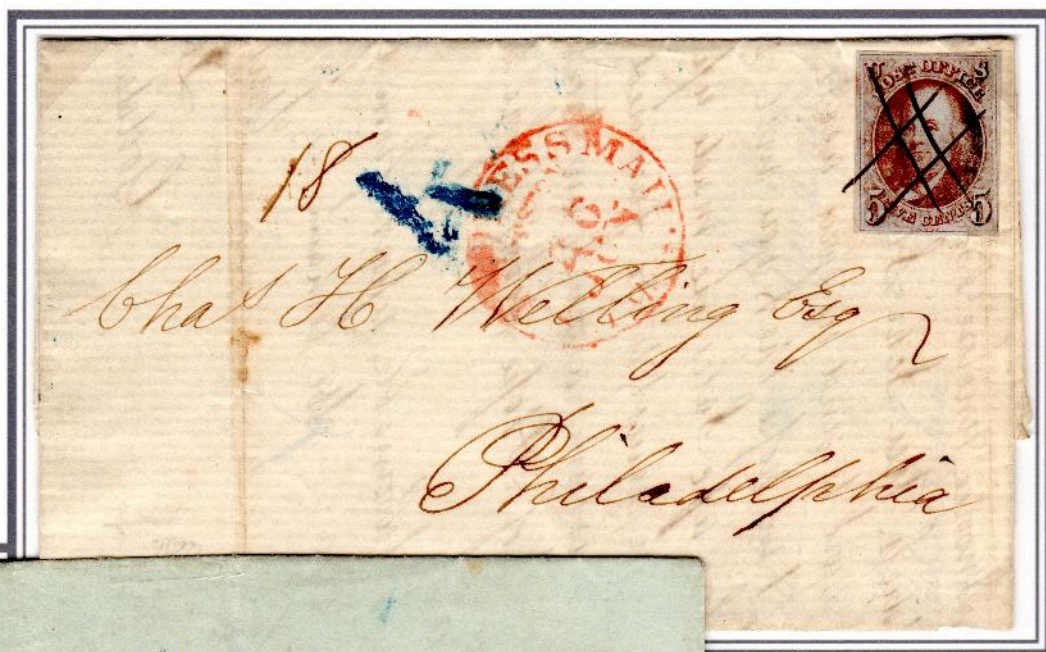 POST OFFICE
U S
FIVE CENTS
5 5
ESSMAIL
18
5
AUG
Chas H. Welling Esq
Philadelphia